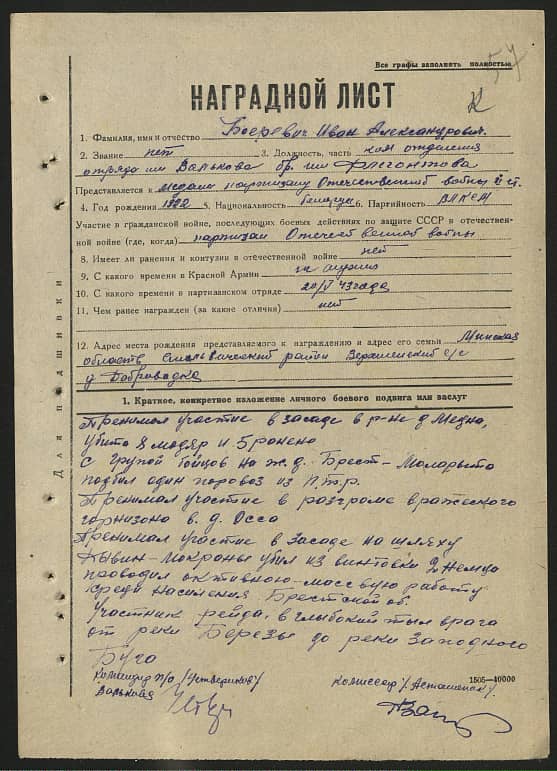 57
Все графы заполнять полностью
НАГРАДНОЙ ЛИСТ
1. Фамилия, имя и отчество Боеревич Иван Александрович
2. Звание нет 3. Должность, часть ком отделения
отряда имВанькова бр. им Флегонтова
Представляется к медали партизану Отечественной войны II ст.
4. Год рождения 1922 5. Национальность 6. Партийность ВЛКСМ
Участие в гражданской войне, последующих боевых действиях по защите СССР в отечествен-
ной войне (где, когда) партизан Отечественной войны
8. Имеет ли ранения и контузии в отечественной войне нет
9. С какого времени в Красной Армии не служил
10. С какого времени в партизанском отряде 20/V 43 года
11. Чем ранее награжден (за какие отличия) нет
12. Адрес места рождения представляемого к награждению и адрес его семьи Минская
область Смолевический район с/с
д
Для подшивки
1. Краткое, конкретное изложение личного боевого подвига или заслуг
Принимал участие в засаде в р-не д. Медно,
убито 8 мадяр и 5 ранено
С групой бойцов на ж.д. Брест - Малорыта
подбил один паровоз из П.т.р.
Принимал участие в разгроме вражеского
гарнизона в. д. Осса
Принимал участие в засаде на шляху
- Мокраны убил из винтовки 2 Немца
проводил активною-массвую работу
среди насиления Брестской об.
Участник рейда, в глыбокий тыл врага
от реки до реки Западного
Буга
Командир п/о /Четвериков/
Ванькова
Комиссар
1505—10000